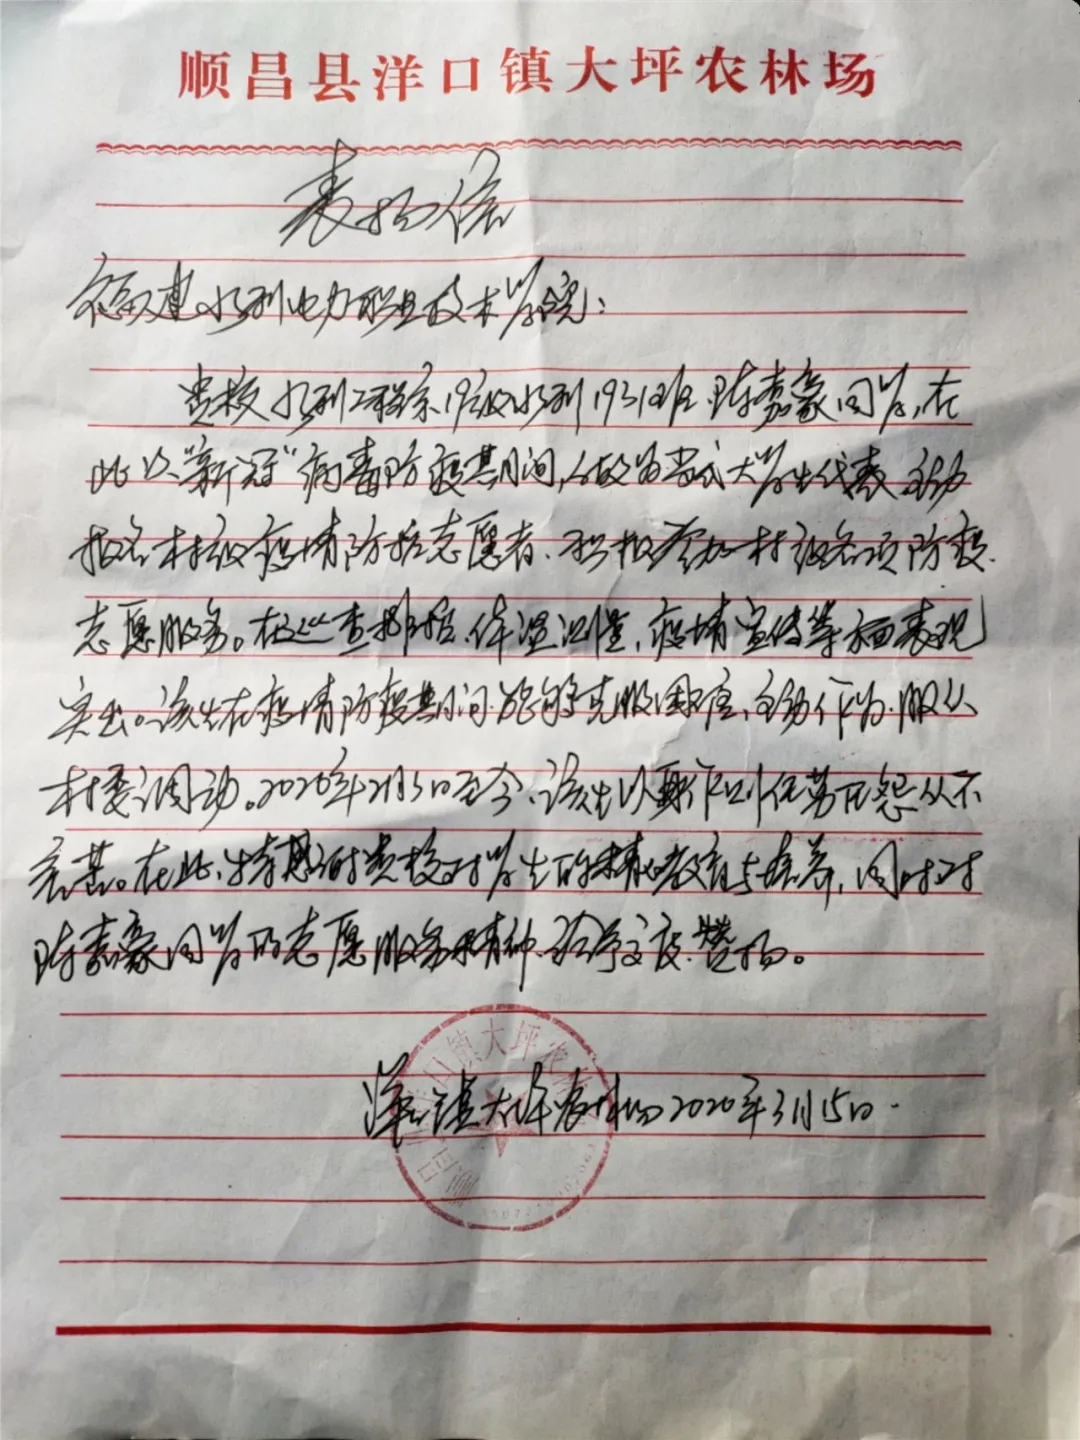 顺昌县洋口镇大坪农林场
表扬信
福建水利电力职业技术学院：
贵校水利工程系19级水利1931班陈嘉豪同学，在
此次"新冠"病毒防疫期间，做为当代大学生代表主动
报名村级疫情防控志愿者、积极参加村级各项防疫
志愿服务。在巡查排查、体温测量，疫情宣传等方面表现
突出。该生在疫情防疫期间能够克服困难、主动作为、服从
村委调动。2020年2月5日至今、该生以来任劳任怨从不
言苦。在此、特感谢贵校对学生的精心教育与培养，同时对
陈嘉豪同学的志愿服务精神、给予赞扬。
洋口镇大坪农林场2020年3月15日
顺昌县洋口镇大坪农林场